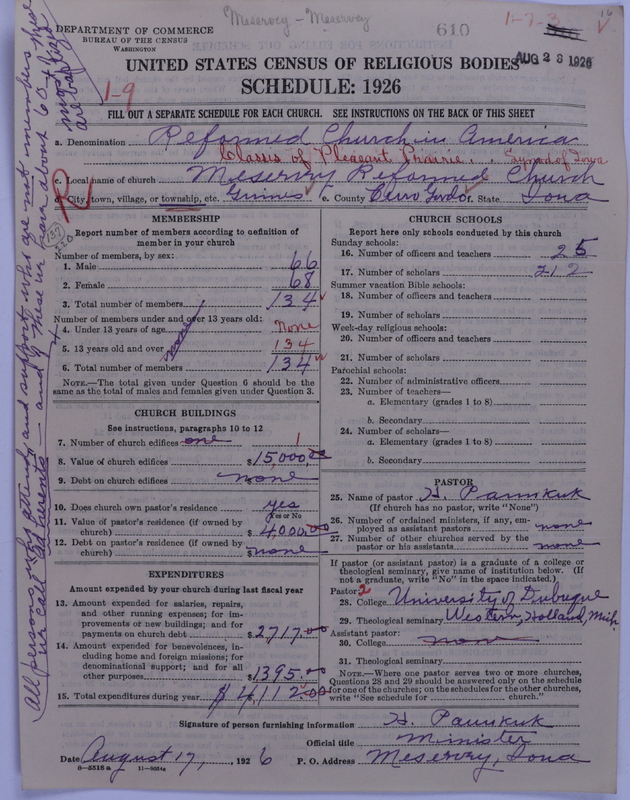 Meservey - Meservey
610
1-7-3
16
DEPARTMENT OF COMMERCE
BUREAU OF THE CENSUS
WASHINGTON
AUG 23 1926
UNITED STATES CENSUS OF RELIGIOUS BODIES
SCHEDULE: 1926
1-9
FILL OUT A SEPARATE SCHEDULE FOR EACH CHURCH. SEE INSTRUCTIONS ON THE BACK OF THIS SHEET
a. Denomination Reformed Church in America
Classis of Pleasant Prairie. Synod of Iowa
c. Local name of church Meservey Reformed Church
R
d. City, town, village, or township, etc. Grimes e. County Cerro Gordo f. State Iowa
MEMBERSHIP
Report number of members according to definition of member in your church
Number of members, by sex:
1. Male 66
2. Female 68
3. Total number of members 134
Number of members under and over 13 years old:
4. Under 13 years of age None
none
5. 13 years old and over 134
6. Total number of members 134
NOTE.—The total given under Question 6 should be the
same as the total of males and females given under Question 3.
CHURCH BUILDINGS
See instructions, paragraphs 10 to 12
7. Number of church edifices one 1
8. Value of church edifices $15,000.00
9. Debt on church edifices none
10. Does church own pastor's residence yes
Yes or No
11. Value of pastor's residence (if owned by
church) $4000.00
12. Debt on pastor's residence (if owned by
church) none
EXPENDITURES
Amount expended by your church during last fiscal year
13. Amount expended for salaries, repairs,
and other running expenses; for im-
provements or new buildings; and for
payments on church debt $2717.00
14. Amount expended for benevolences, in-
cluding home and foreign missions; for
denominational support; and for all
other purposes $1395.00
15. Total expenditures during year $4112.00
CHURCH SCHOOLS
Report here only schools conducted by this church
Sunday schools:
16. Number of officers and teachers 25
17. Number of scholars 212
Summer vacation Bible schools:
18. Number of officers and teachers
19. Number of scholars
Week-day religious schools:
20. Number of officers and teachers
21. Number of scholars
Parochial schools:
22. Number of administrative officers
23. Number of teachers—
a. Elementary (grades 1 to 8)
b. Secondary
24. Number of scholars—
a. Elementary (grades 1 to 8)
b. Secondary
PASTOR
25. Name of pastor H.
(If church has no pastor, write "None")
26. Number of ordained ministers, if any, em-
ployed as assistant pastors none
27. Number of other churches served by the
pastor or his assistants none
If pastor (or assistant pastor) is a graduate of a college or
theological seminary, give name of institution below. (If
not a graduate, write "No" in the space indicated.)
Pastor: 2
28. College University of Dubuque
29. Theological seminary Western, Holland, Mich
Assistant pastor:
30. College none
31. Theological seminary
NOTE.—Where one pastor serves two or more churches,
Questions 28 and 29 should be answered only on the schedule
for one of the churches; on the schedules for the other churches,
write "See schedule for church."
Signature of person furnishing information H.
Official title Minister
Date August 17, 1926 P. O. Address Meservey, Iowa
8—5518 a 11—9054a
All persons who attend and support who are not members here
we call adherents — and of these we have about 60 + three
are